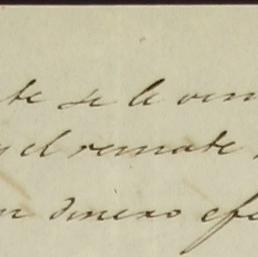 te se le ven
y el remate
en dinero efe